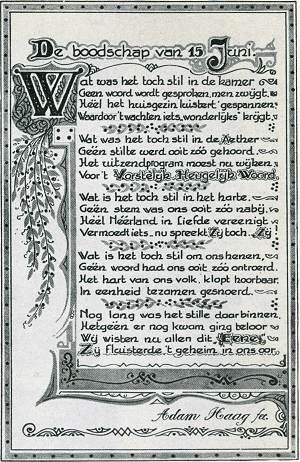 De boodschap van 15 Juni.
Wat was het toch stil in de kamer
Geen woord wordt gesproken, men zwijgt.
Héél het huisgezin luistert gespannen,
Waardoor 't wachten iets "wonderlijks" krijgt.
Wat was het toch stil in de Aether
Geen stilte werd ooit zóó gehoord.
Het uitzendprogram moest nu wijken
Voor 't Vorstelijk, Heugelijk Woord.
Wat is het toch stil in het harte.
Geen stem was ons ooit zóó nabij,
Héél Néérland in Liefde vereenigt
Vermoedt iets.. nu spreekt Zij toch.. Zij
Wat is het toch stil om ons henen,
Geen woord had ons ooit zóó ontroerd.
Het hart van ons volk, klopt hoorbaar,
In eenheid tezamen gesnoerd.
Nog lang was het stille daarbinnen,
Hetgéén er nog kwam ging teloor
Wij wisten nu allen dit Eene;
Zij fluisterde 't geheim in ons oor.
Adam Haag fc.